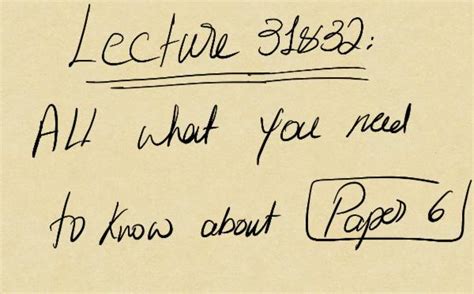 Lecture 31&32:
All what you need
to know about Paper 6